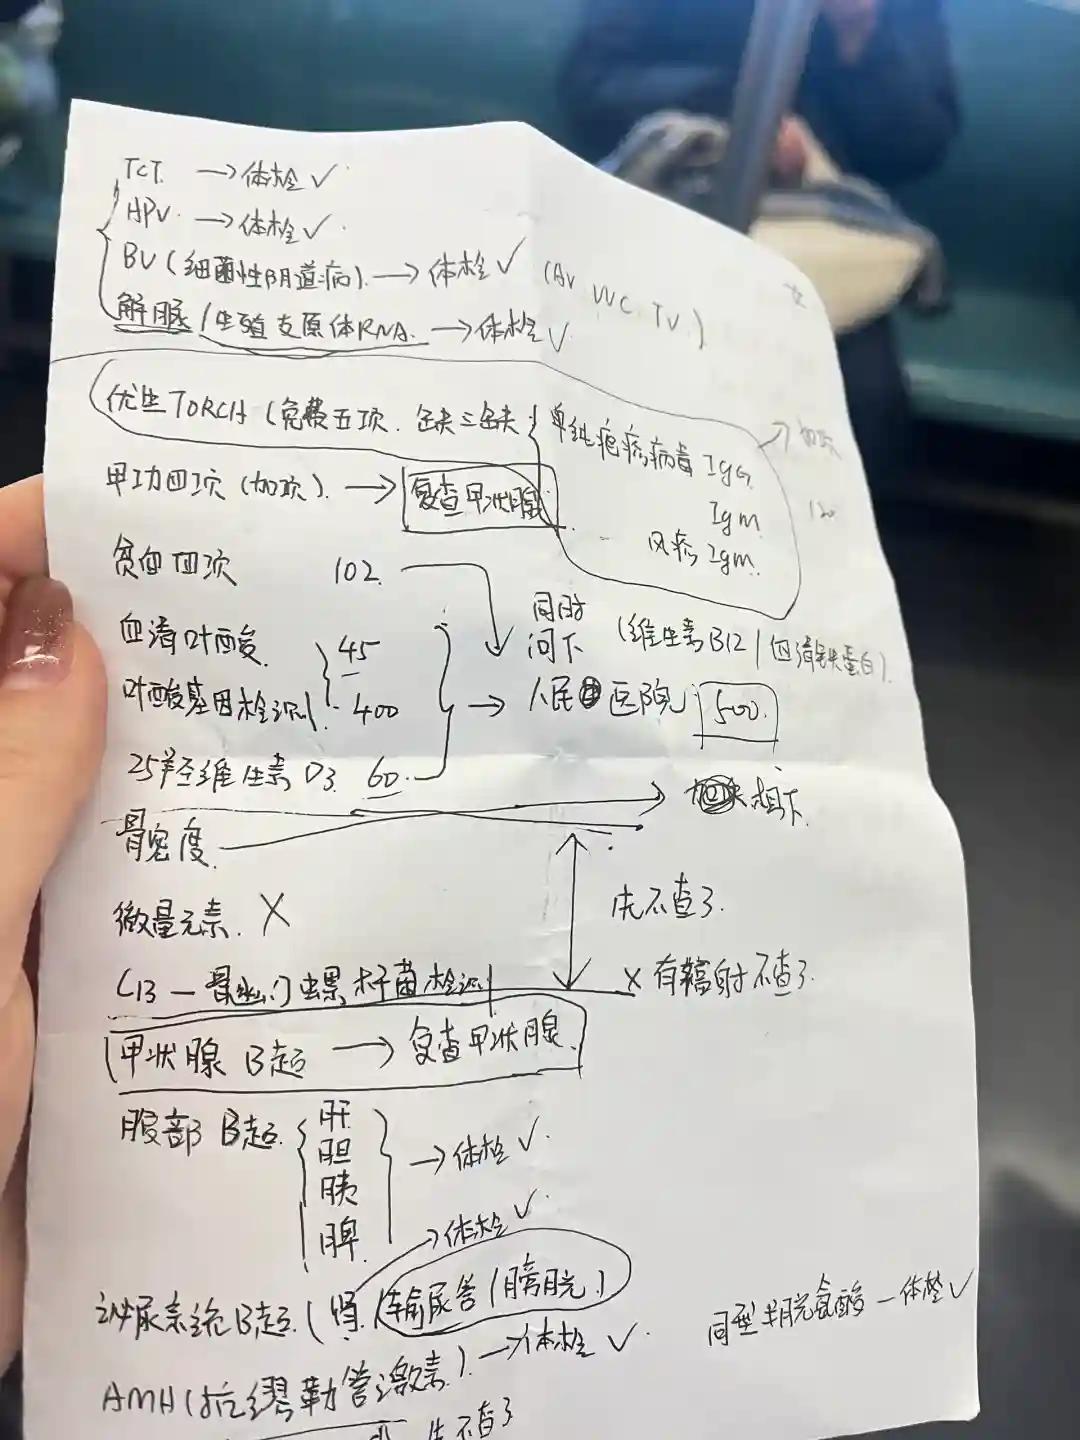 TCT. → 体检 ✓
HPV. → 体检 ✓
BV (细菌性阴道病). → 体检 ✓ (AV VVC TV)
解脲/生殖支原体RNA. → 体检 ✓
优生TORCH (免费五项. 缺三缺 { 单纯疱疹病毒 IgG. → 加项
IgM. 120
风疹 IgM.
甲功四项 (加项). → 复查甲状腺
贫血四项 102. 同时问下 (维生素B12/血清铁蛋白).
血清叶酸. 45
叶酸基因检测 400 → 人民医院 500.
25羟维生素D3. 60.
骨密度. → 下.
微量元素. X 先不查了.
C13 — 幽门螺杆菌检测 X 有辐射不查了.
甲状腺 B超 → 复查甲状腺.
腹部B超. { 肝 胆 胰 脾 } → 体检 ✓.
泌尿系统B超. (肾/输尿管/膀胱) → 体检 ✓.
同型半胱氨酸 — 体检 ✓
AMH (抗缪勒管激素). → 体检 ✓.
先不查了